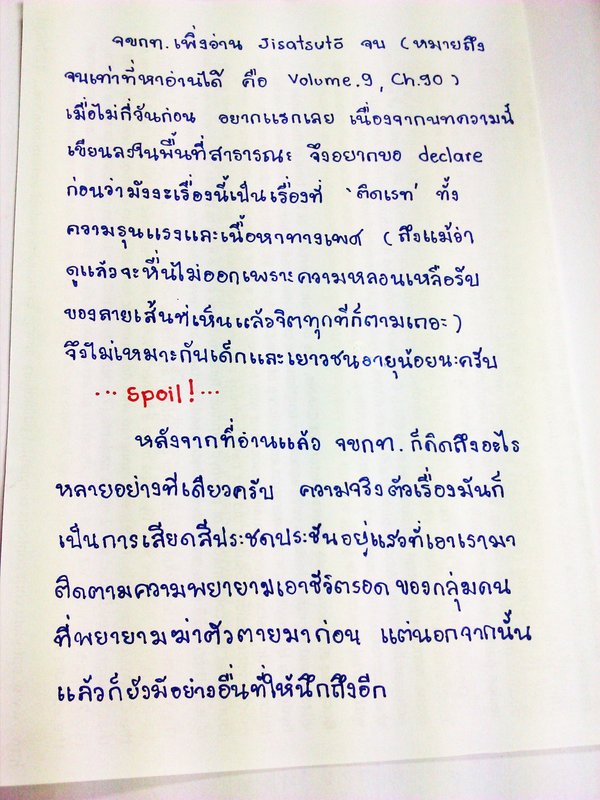 จขกท. เพิ่งอ่าน Jisatsutō จบ (หมายถึง
จนเท่าที่หาอ่านได้ คือ Volume.9, Ch.90)
เมื่อไม่กี่วันก่อน อยากแรกเลย เนื่องจากบทความนี้
เขียนลงในพื้นที่สาธารณะ จึงอยากขอ declare
ก่อนว่ามังงะเรื่องนี้เป็นเรื่องที่ 'ติดเรท' ทั้ง
ความรุนแรงและเนื้อหาทางเพศ (ถึงแม้ว่า
ดูแล้วจะหื่นไม่ออกเพราะความหลอนเหลือรับ
ของลายเส้นที่เห็นแล้วจิตทุกทีก็ตามเถอะ)
จึงไม่เหมาะกับเด็กและเยาวชนอายุน้อยนะครับ
... Spoil! ...
หลังจากที่อ่านแล้ว จขกท. ก็คิดถึงอะไร
หลายอย่างทีเดียวครับ ความจริงตัวเรื่องมันก็
เป็นการเสียดสีประชดประชันอยู่แล้วที่เอาเรามา
ติดตามความพยายามเอาชีวิตรอดของกลุ่มคน
ที่พยายามฆ่าตัวตายมาก่อน แต่นอกจากนั้น
แล้วก็ยังมีอย่างอื่นที่ให้นึกถึงอีก